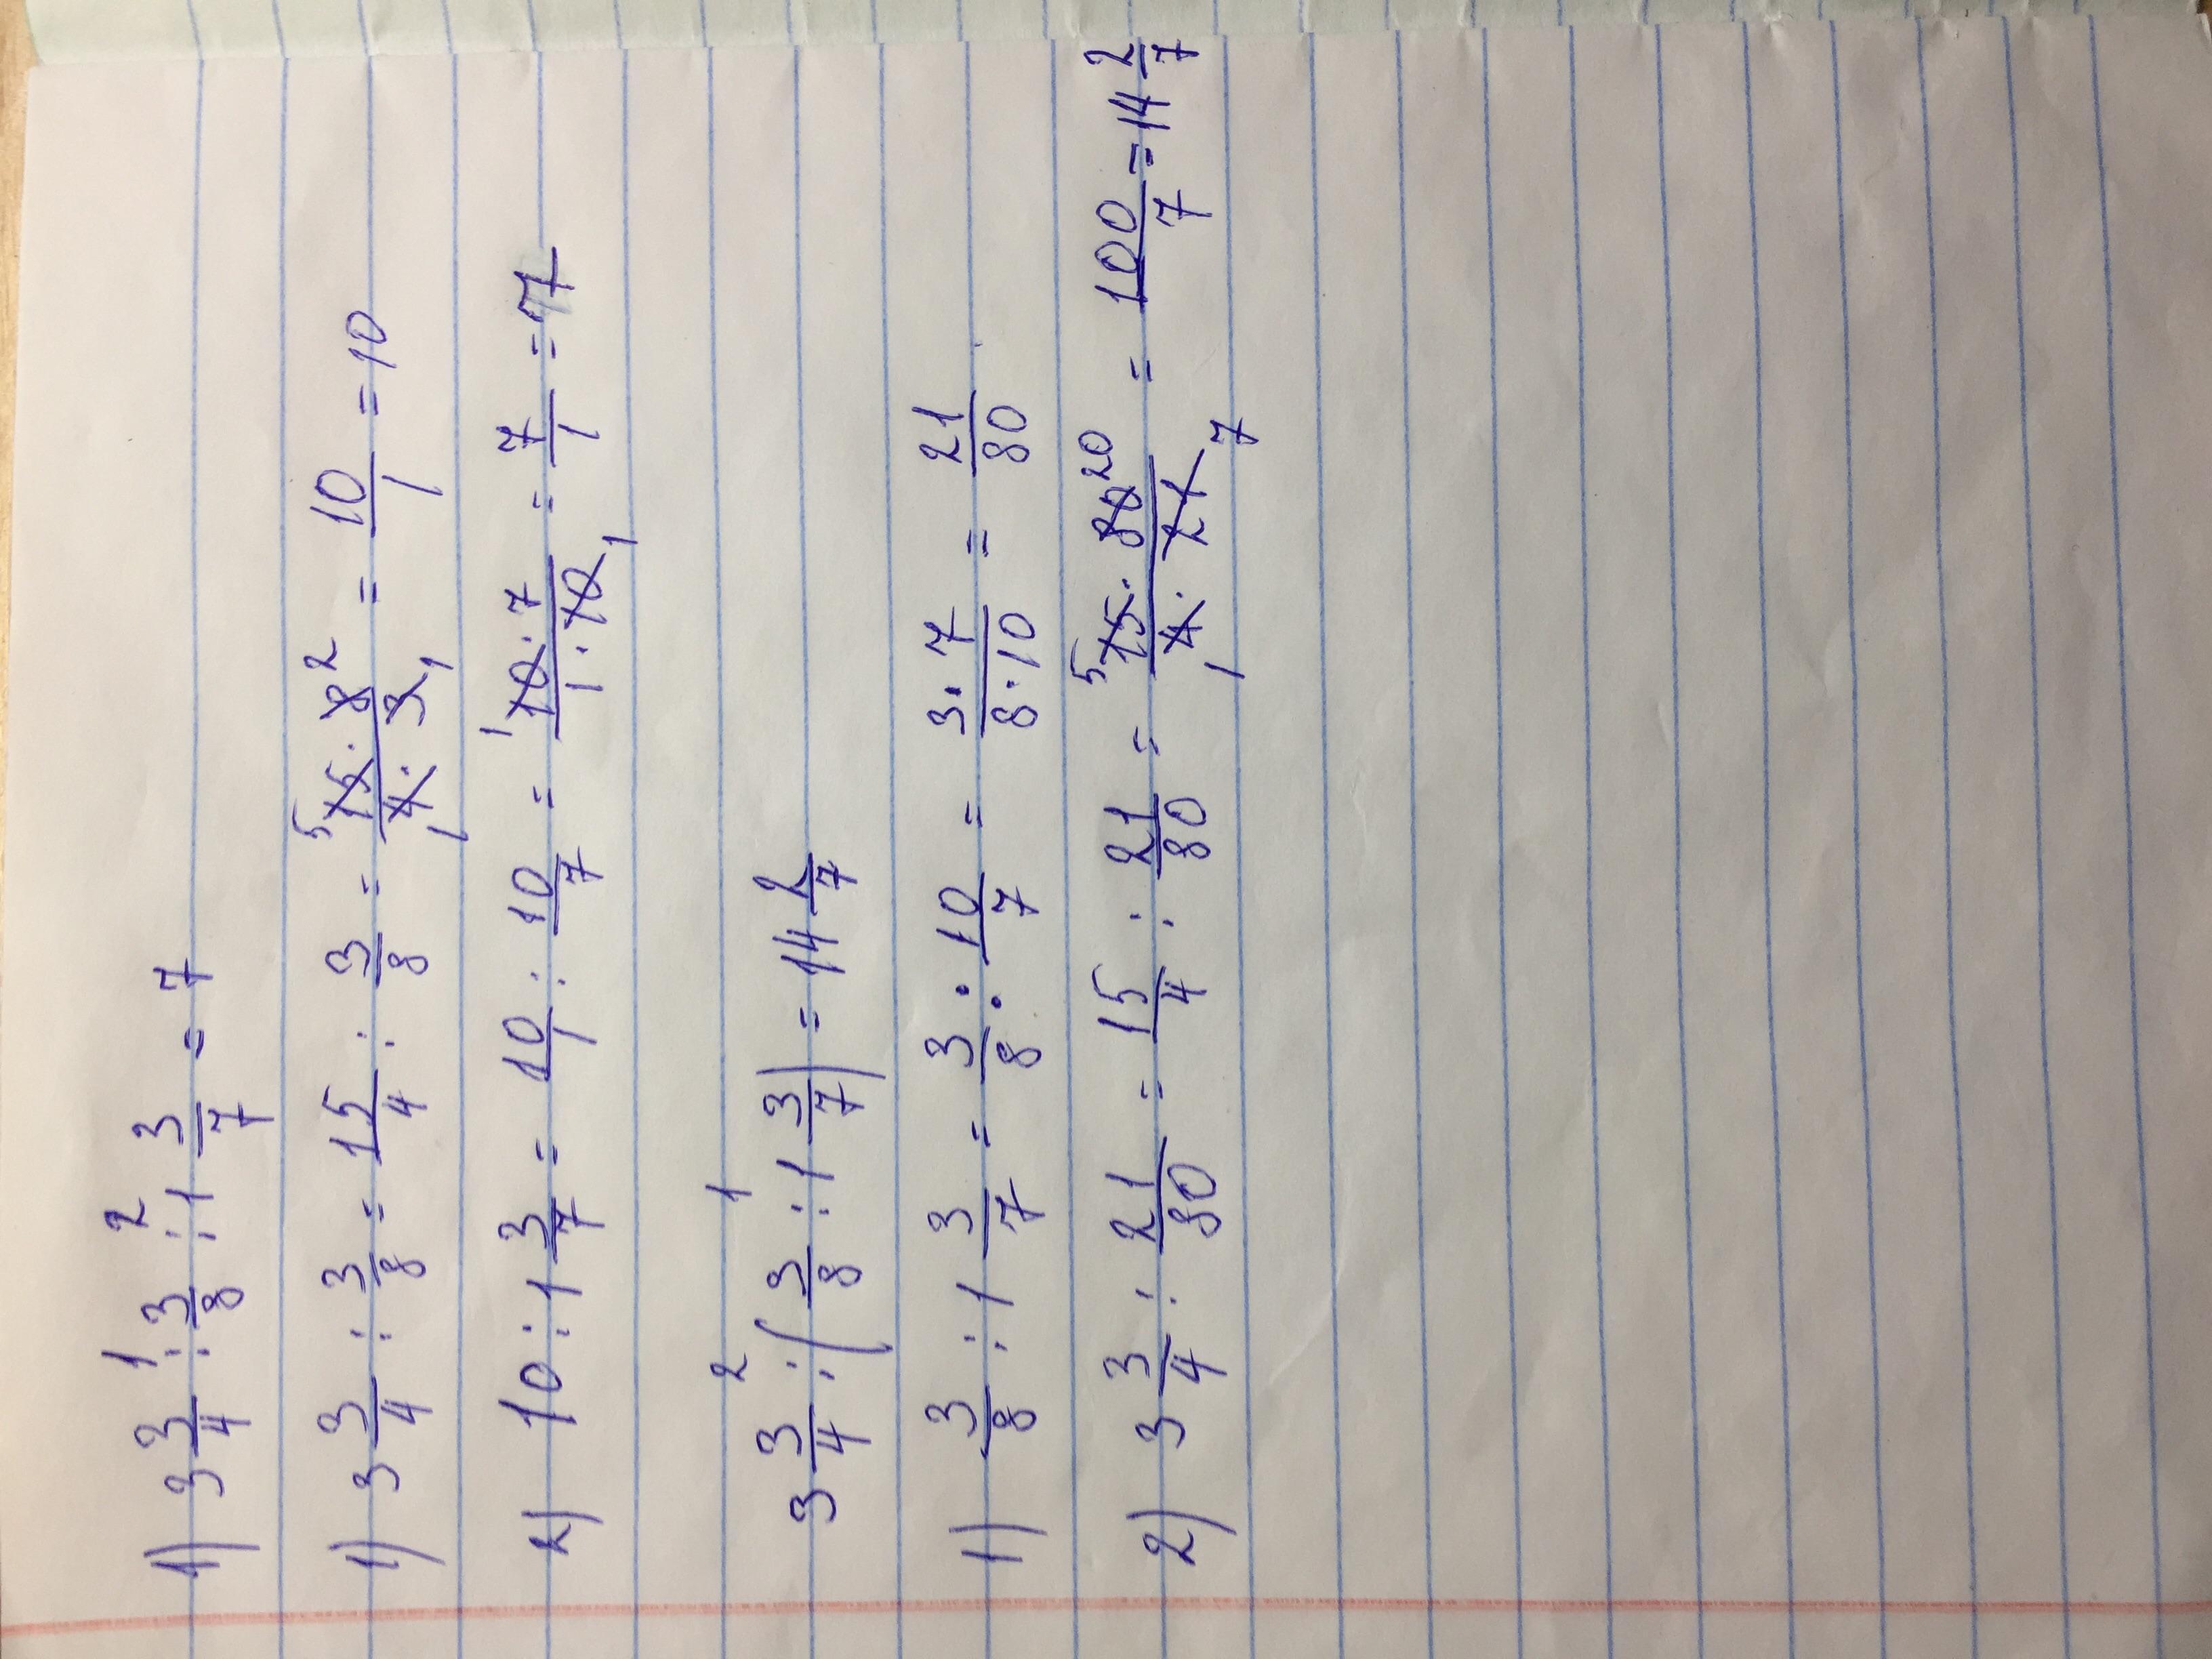 1) 3 3/4 : 3/8 : 1 3/7 = 7
1) 3 3/4 : 3/8 = 15/4 : 3/8 = 15·8/4·3 = 10/1 = 10
2) 10 : 1 3/7 = 10/1 : 10/7 = 10·7/1·10 = 7/1 = 7
3 3/4 : (3/8 : 1 3/7) = 14 2/7
1) 3/8 : 1 3/7 = 3/8 : 10/7 = 3·7/8·10 = 21/80
2) 3 3/4 : 21/80 = 15/4 : 21/80 = 15·80/4·21 = 100/7 = 14 2/7